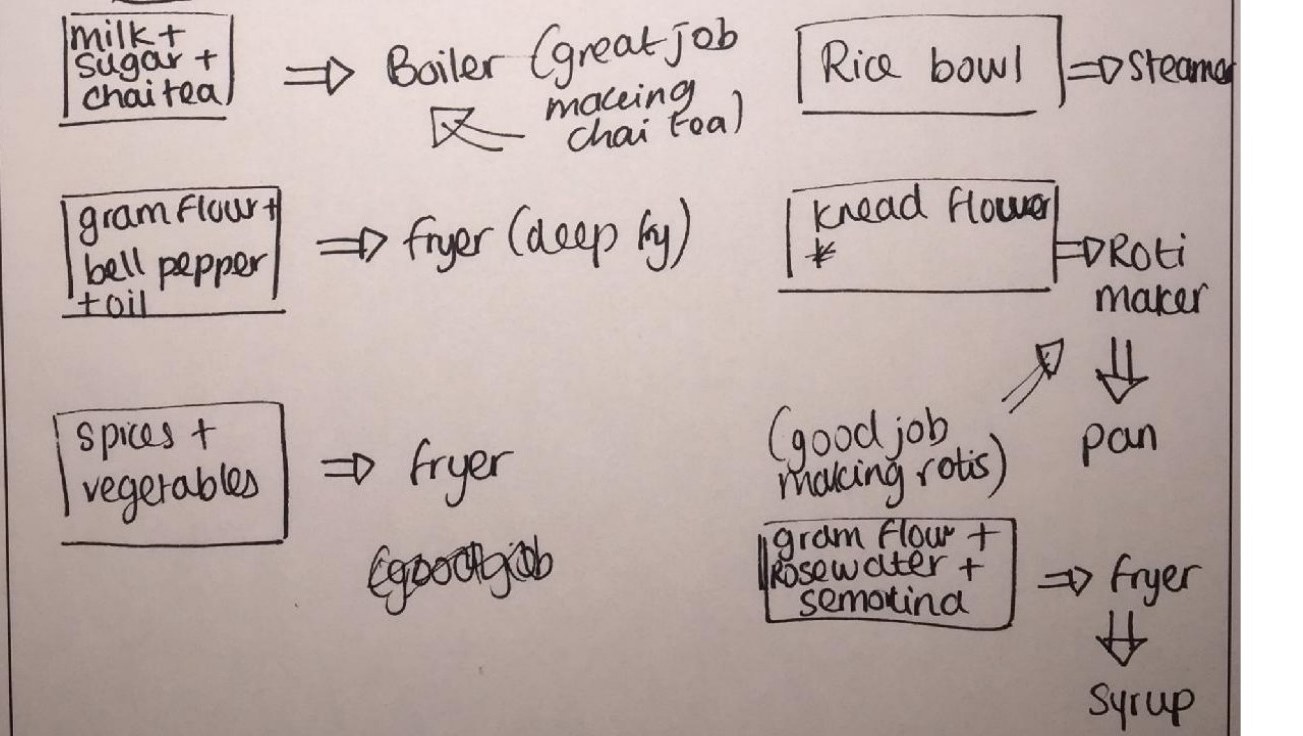 milk +
sugar +
chai tea
⇒ Boiler (great job
making
chai tea)
gram flour +
bell pepper
+ oil
⇒ fryer (deep fry)
spices +
vegetables
⇒ fryer
Rice bowl ⇒ Steamer
knead flower
*
⇒ Roti
maker
⇓
pan
(good job
making rotis)
gram flour +
Rosewater +
semolina
⇒ fryer
⇓
Syrup